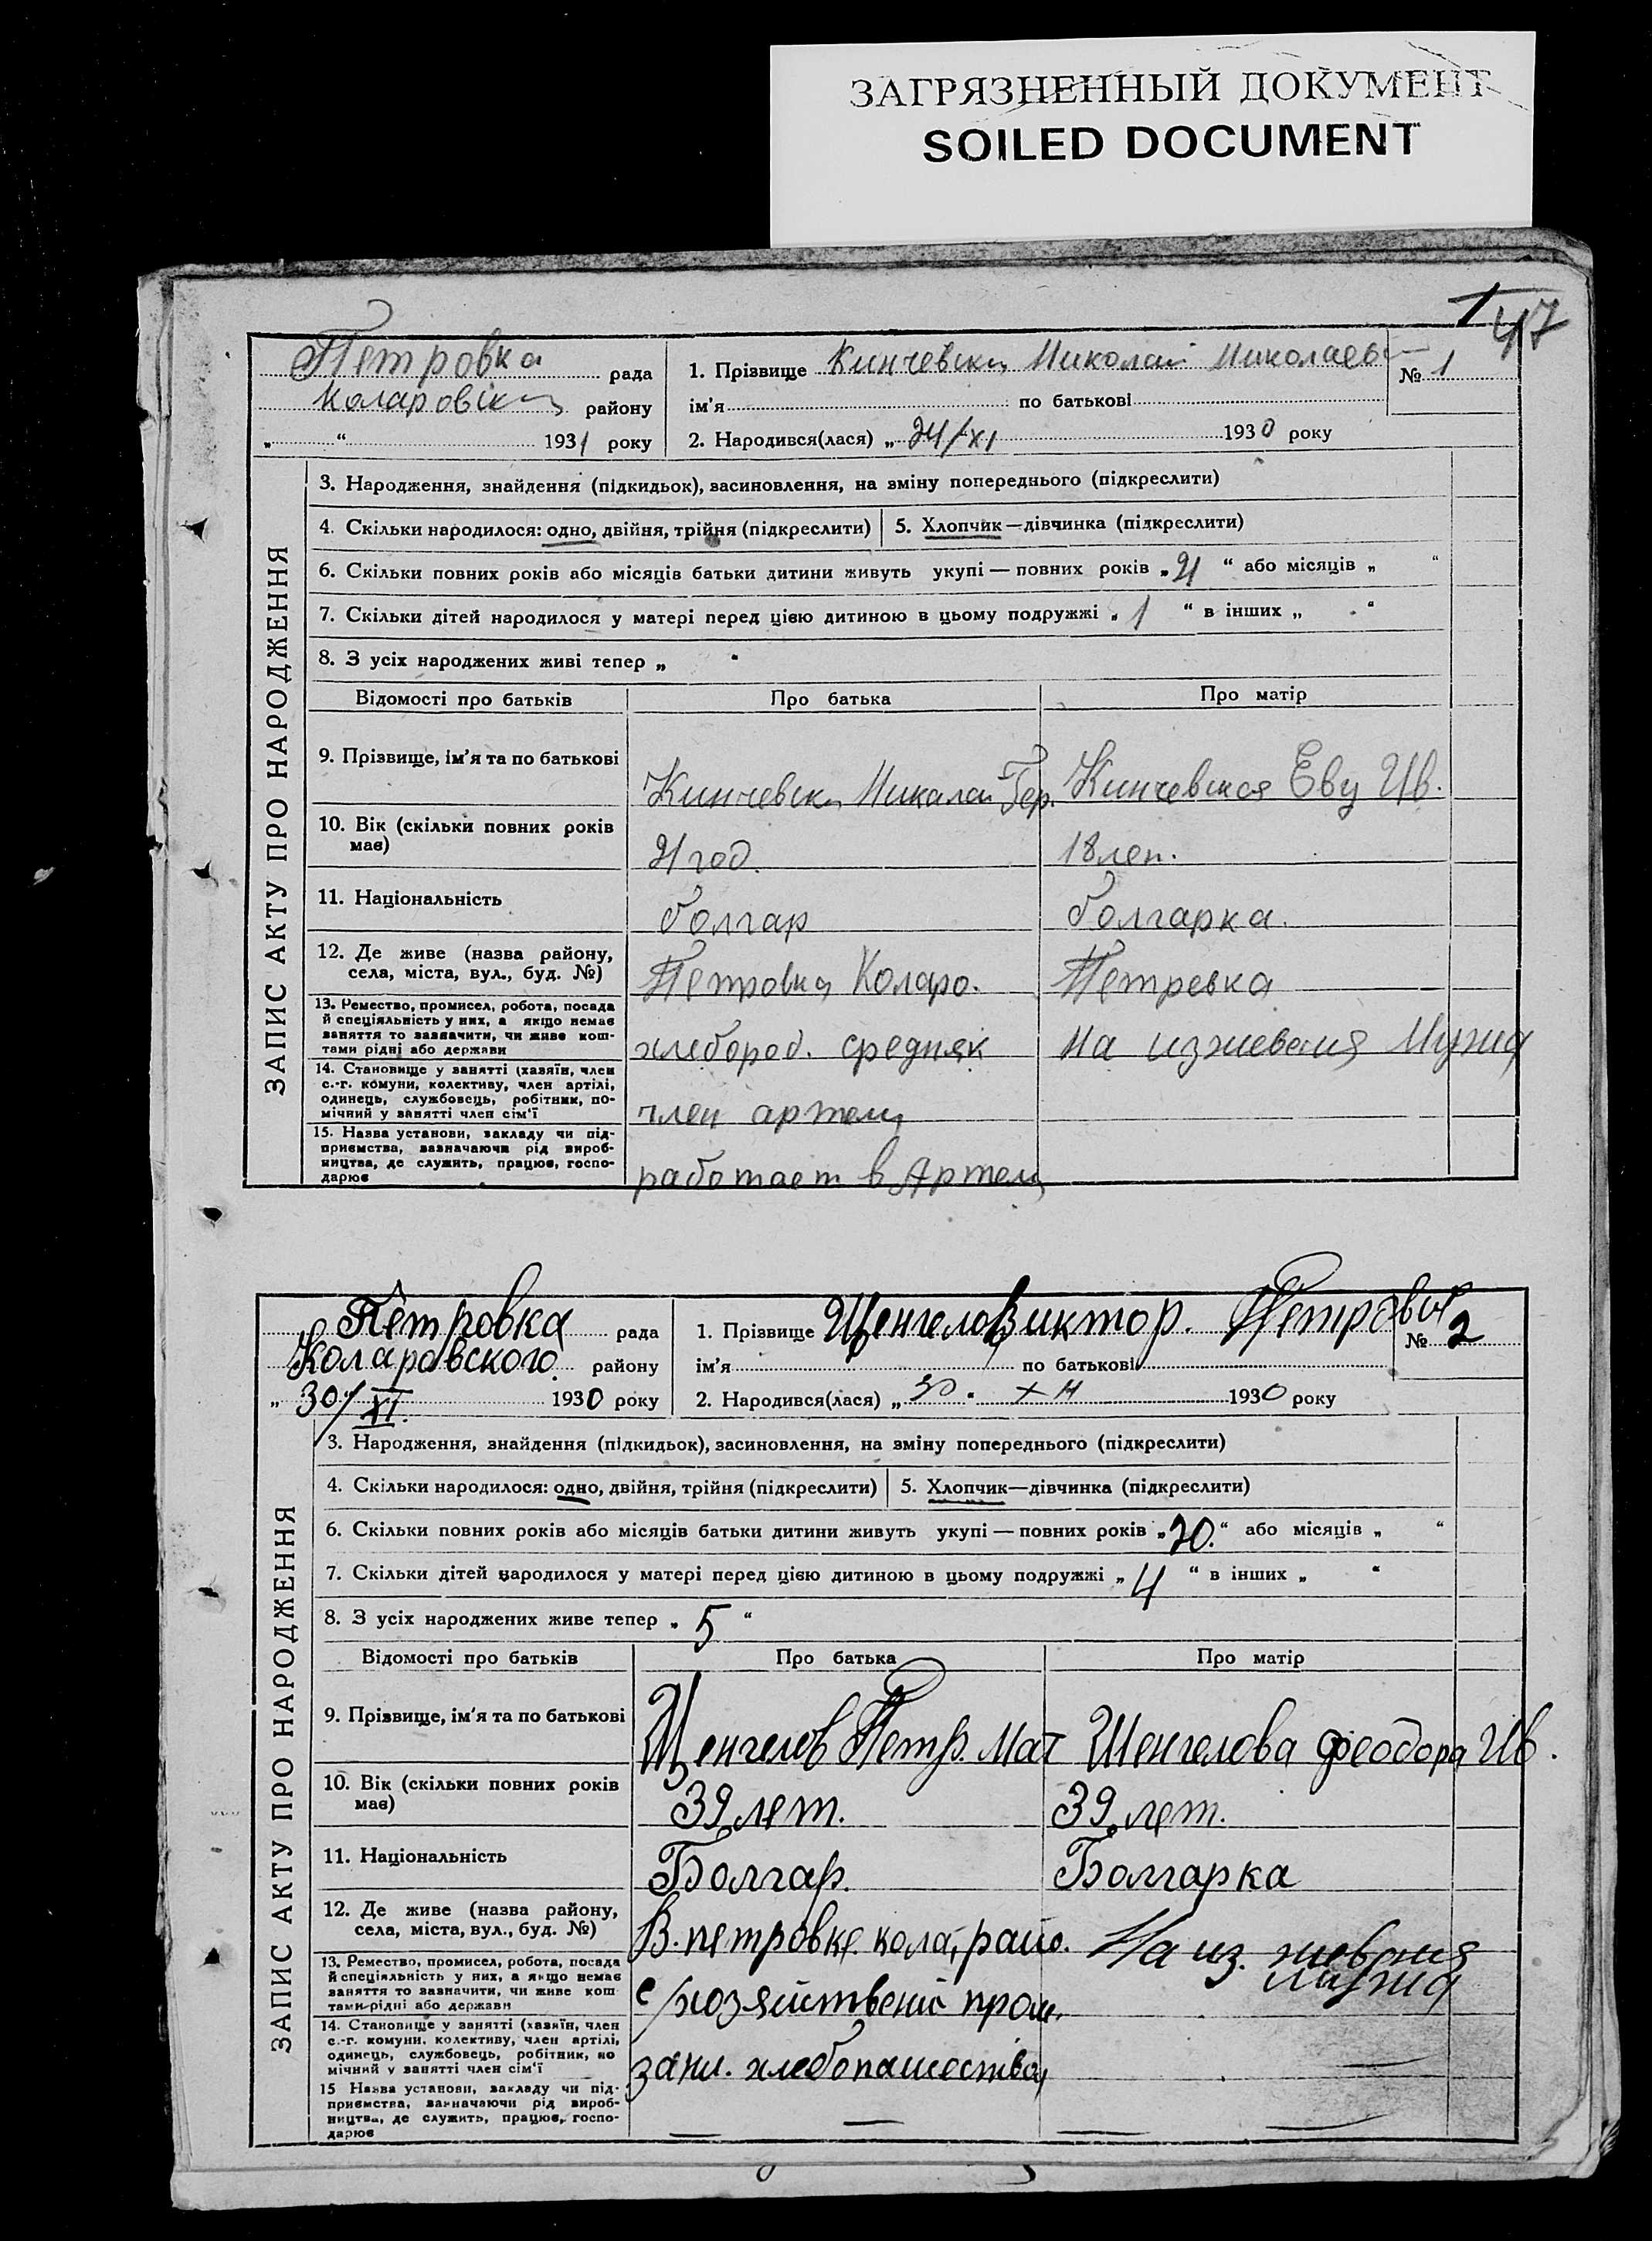 ЗАГРЯЗНЕННЫЙ ДОКУМЕНТ
SOILED DOCUMENT
1 47
Петровка рада
Коларовски району
„ “ 1931 року
1. Прізвище Кинчевски Николай Николаев
№ 1
ім'я по батькові
2. Народився(лася) „ 24/XI 1930 року
ЗАПИС АКТУ ПРО НАРОДЖЕННЯ
3. Народження, знайдення (підкидьок), засиновлення, на зміну попереднього (підкреслити)
4. Скільки народилося: одно, двійня, трійня (підкреслити)
5. Хлопчик—дівчинка (підкреслити)
6. Скільки повних років або місяців батьки дитини живуть укупі — повних років „ “ або місяців „ “
7. Скільки дітей народилося у матері перед цією дитиною в цьому подружжі „ 1 “ в інших „ “
8. З усіх народжених живі тепер „
Відомості про батьків Про батька Про матір
9. Прізвище, ім'я та по батькові
Кинчевски Николай Гер. Кинчевская Еву Ив.
10. Вік (скільки повних років
має)
21 год. 18 лет.
11. Національність
болгар болгарка.
12. Де живе (назва району,
села, міста, вул., буд. №)
Петровка Коларо. Петровка
13. Ремество, промисел, робота, посада
й спеціяльність у них, а якщо немає
заняття то зазначити, чи живе кош-
тами рідні або держави
хлебород. средняк На изжевения Мужа
14. Становище у занятті (хазяїн, член
с.-г. комуни, колективу, член артілі,
одинець, службовець, робітник, по-
мічний у занятті член сім'ї
член артели
15. Назва установи, закладу чи під-
приємства, вазначаючи рід вироб-
ництва, де служить, працює, госпо-
дарює
работает в Артели
Петровка рада
Коларовского району
„ 30/XI. 1930 року
1. Прізвище Щенгелов Виктор. Петрович
№ 2
ім'я по батькові
2. Народився(лася) „ 30 “ 1930 року
ЗАПИС АКТУ ПРО НАРОДЖЕННЯ
3. Народження, знайдення (підкидьок), засиновлення, на зміну попереднього (підкреслити)
4. Скільки народилося: одно, двійня, трійня (підкреслити)
5. Хлопчик—дівчинка (підкреслити)
6. Скільки повних років або місяців батьки дитини живуть укупі — повних років „ 20. “ або місяців „ “
7. Скільки дітей народилося у матері перед цією дитиною в цьому подружжі „ 4 “ в інших „ “
8. З усіх народжених живе тепер „ 5 “
Відомості про батьків Про батька Про матір
9. Прізвище, ім'я та по батькові
Щенгелов Петр. Мат Щенгелова Феодора Ив.
10. Вік (скільки повних років
має)
39 лет. 39 лет.
11. Національність
Болгар. Болгарка
12. Де живе (назва району,
села, міста, вул., буд. №)
В. петровке кола, райо. На из. жевения
мужа
13. Ремество, промисел, робота, посада
й спеціяльність у них, а якщо немає
заняття то вазначити, чи живе кош
тами рідні або держави
с/хозяйствений пром.
14. Становище у занятті (хазяїн, член
с.-г. комуни, колективу, член артілі,
одинець, службовець, робітник, по
мічний у занятті член сім'ї
зани. хлебопашества
15 Назва установи, закладу чи під-
приємства, вазначаючи рід вироб-
ництва, де служить, працює, госпо-
дарює